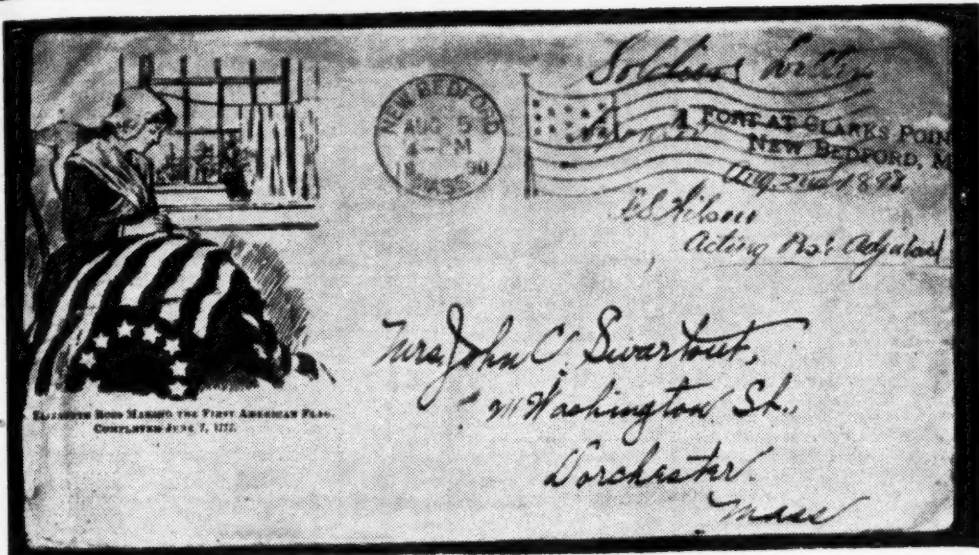 Soldiers Letter
NEW BEDFORD
AUG 5
4-PM
MASS.
FORT AT CLARKS POIN
NEW BEDFORD, M
Aug 2nd 1898
Wilson
Acting Adjutant
Mrs John C. Swartout,
Washington St.,
Dorchester.
Mass
ELIZABETH ROSS MAKING THE FIRST AMERICAN FLAG.
COMPLETED JUNE 7, 1777.